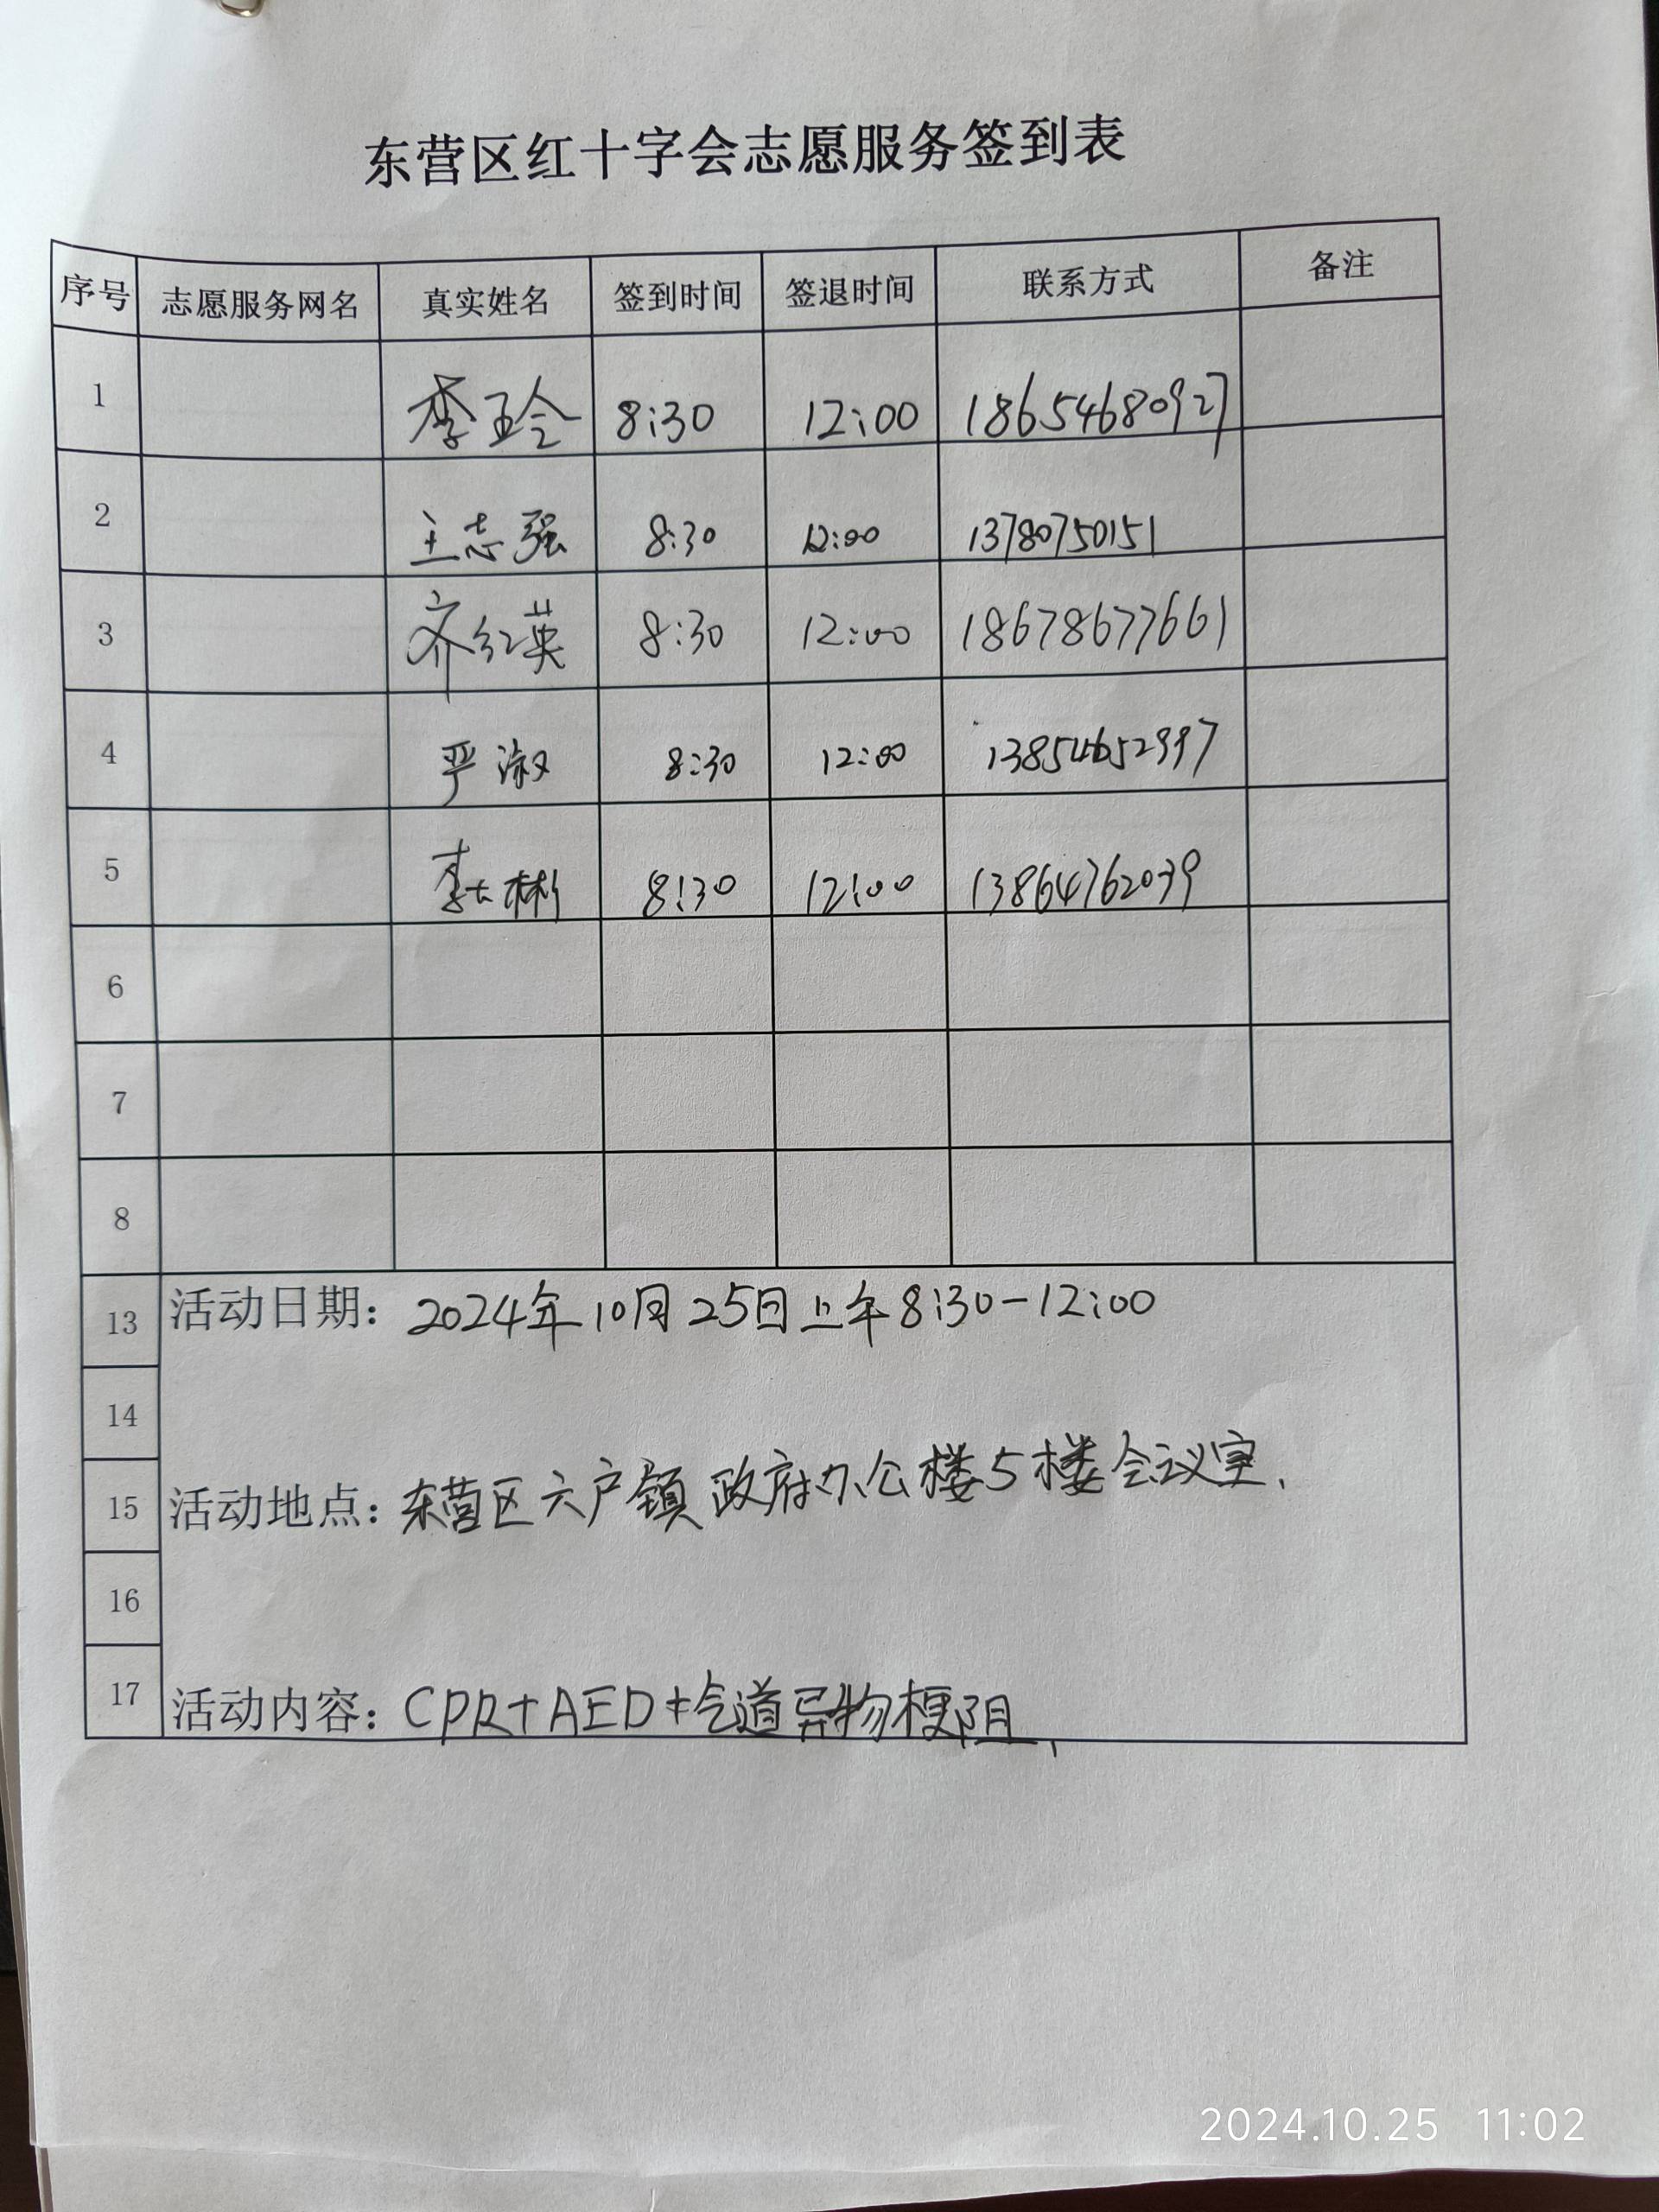 东营区红十字会志愿服务签到表
序号 志愿服务网名 真实姓名 签到时间 签退时间 联系方式 备注
1 李玲 8:30 12:00 18654680927
2 王志强 8:30 12:00 13780750151
3 齐红英 8:30 12:00 18678677661
4 严淑 8:30 12:00 13854652997
5 李大彬 8:30 12:00 13864762039
6
7
8
13 活动日期：2024年10月25日上午8:30-12:00
14
15 活动地点：东营区六户镇政府办公楼5楼会议室.
16
17 活动内容：CPR+AED+气道异物梗阻、
2024.10.25 11:02